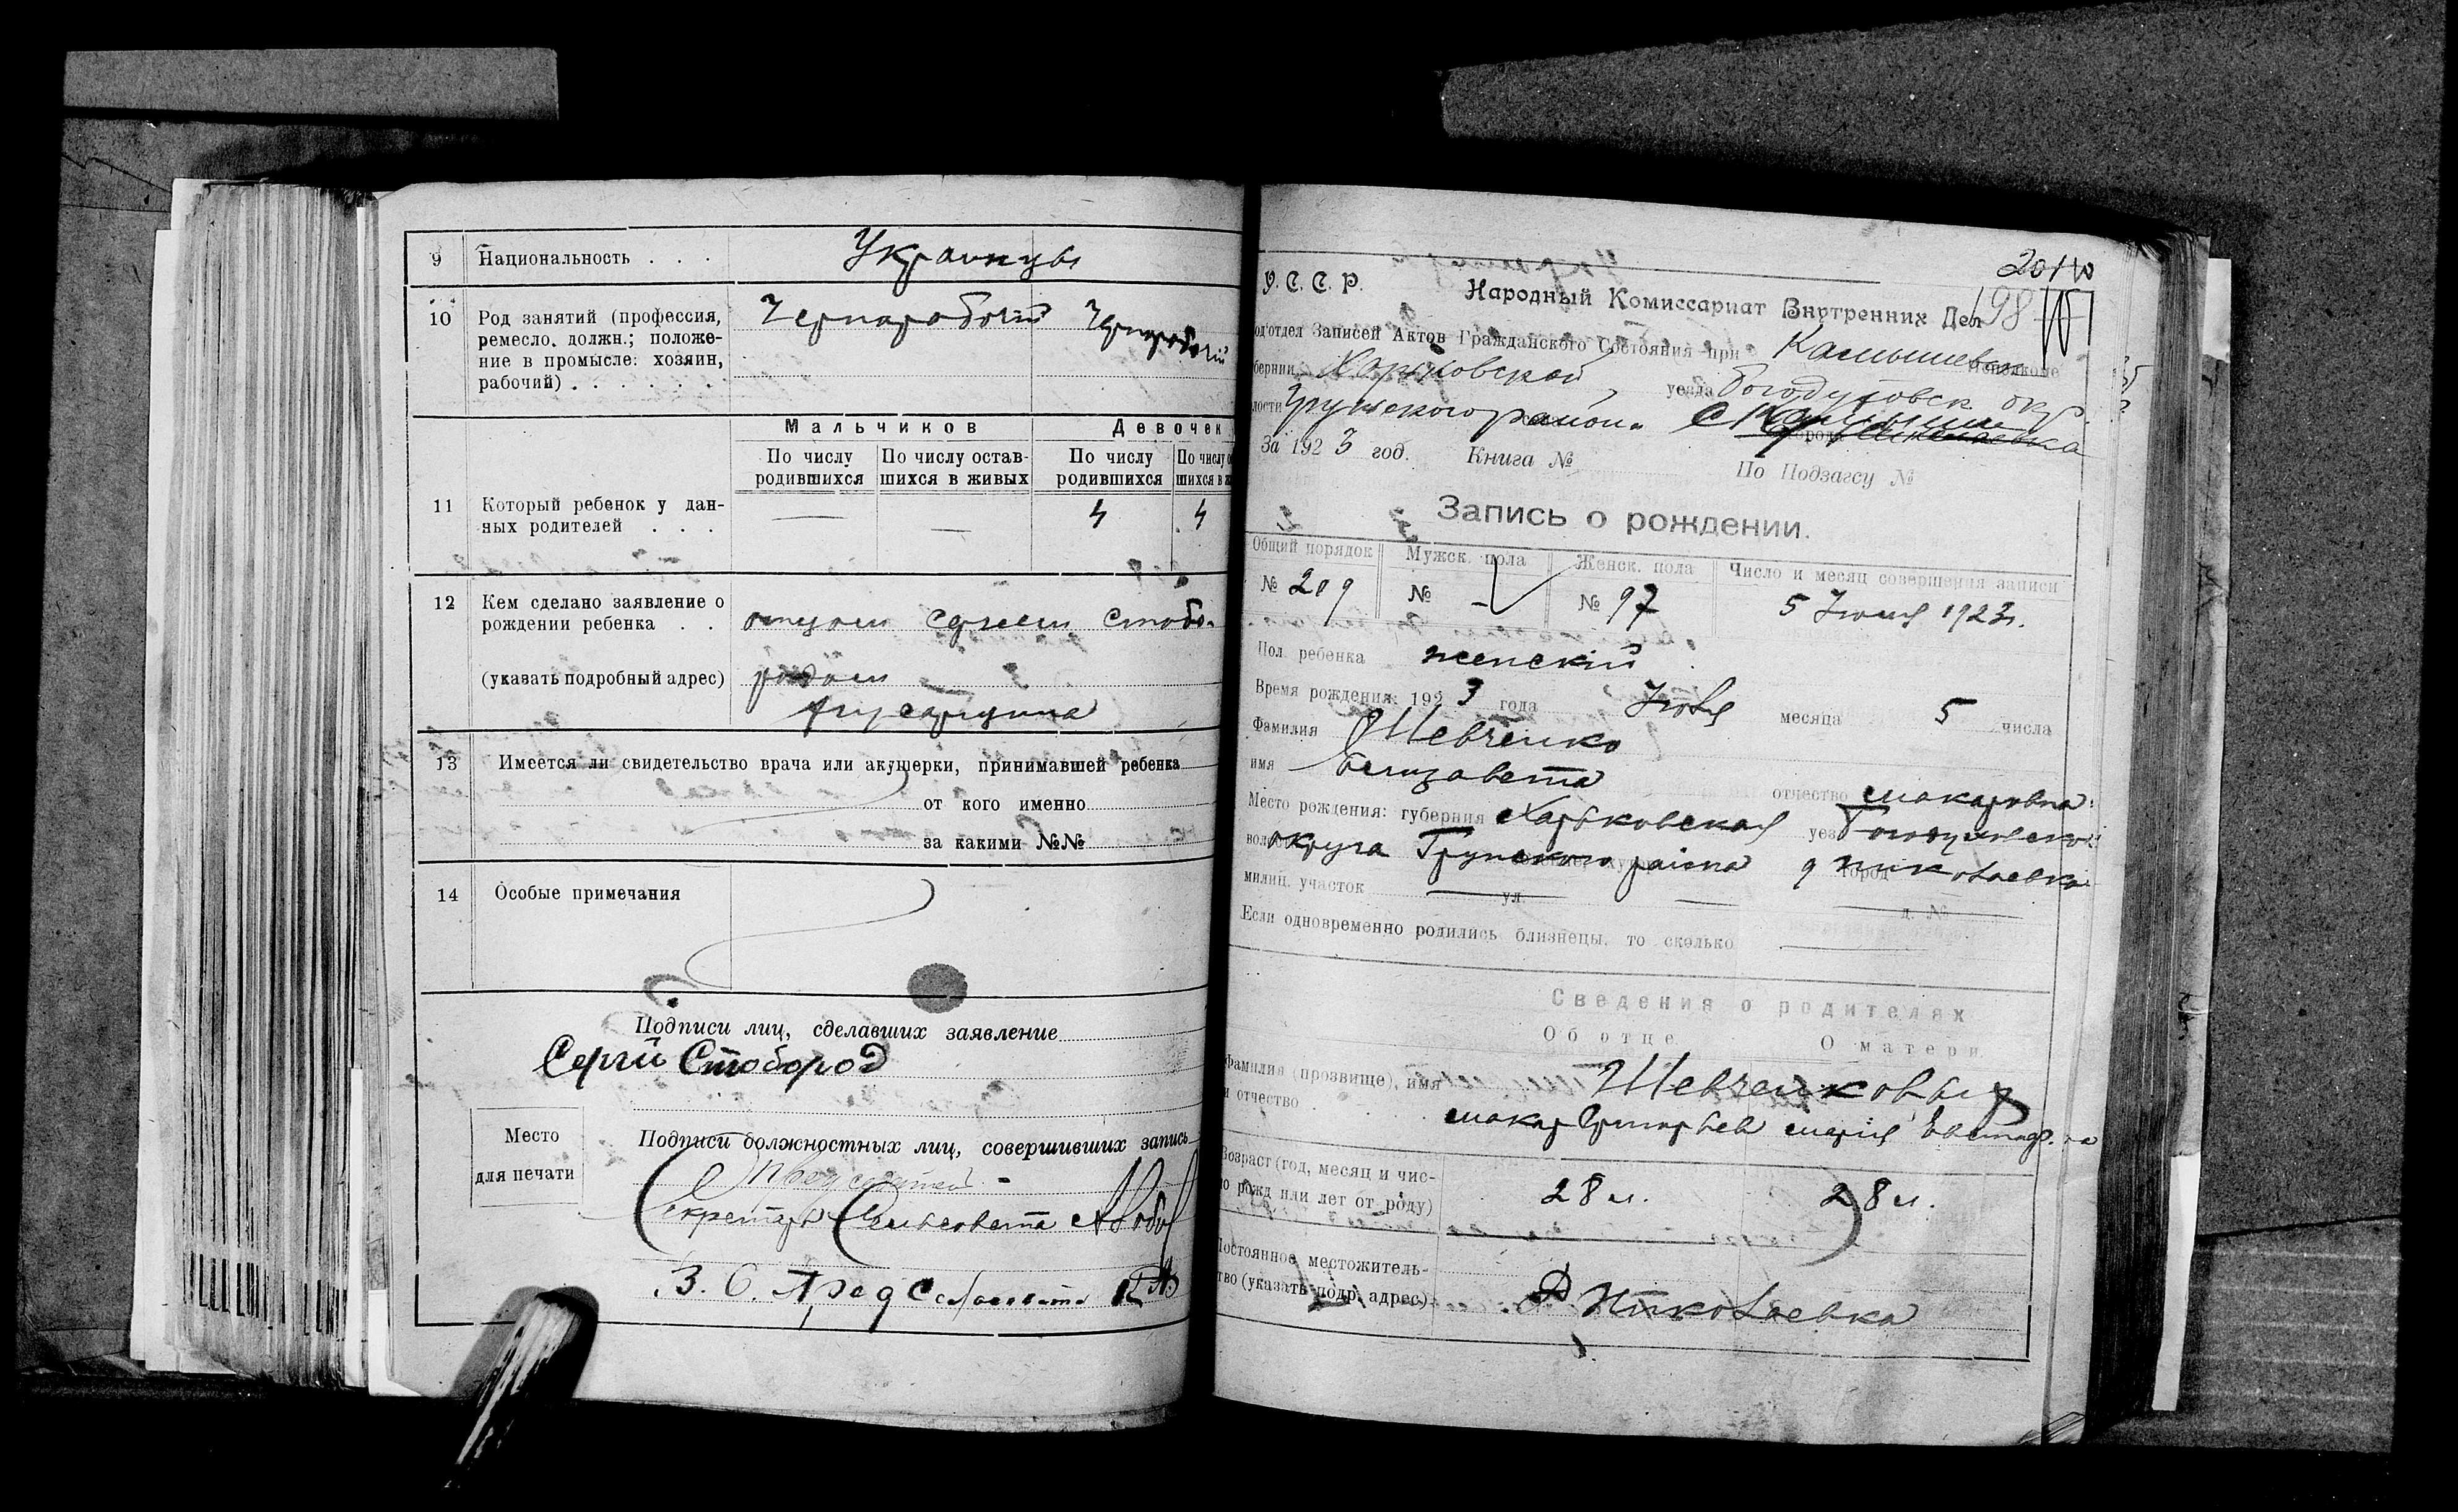 9 Национальность . . . Украинцы
10 Род занятий (профессия, Чернорабочій Чернорабочій
ремесло, должн.; положе-
ние в промысле: хозяин,
рабочий) . . . . . .
Мальчиков Девочек
По числу родившихся По числу остав-шихся в живых По числу родившихся По числу
11 Который ребенок у дан- — — 4 4
ных родителей . . .
12 Кем сделано заявление о отцом Сергеем Стобо-
рождении ребенка . .
(указать подробный адрес) родом
13 Имеется ли свидетельство врача или акушерки, принимавшей ребенка
от кого именно
за какими №№
14 Особые примечания
Подписи лиц, сделавших заявление
Сергій Стобород
Место
для печати
Подписи должностных лиц, совершивших запись
Секретарь Сельсовета
З. С. Пред
201
У. С. С. Р.
Народный Комиссариат Внутренних Дел 98
од'отдел Записей Актов Гражданского Состояния при
бернии Харьковской уезда Богодуховск окр.
лости Грунского район.
За 1923 год. Книга № По Подзагсу №
Запись о рождении.
Общий порядок Мужск. пола Женск. пола Число и месяц совершения записи
№ 209 № - № 97 5 Июля 1923г.
Пол ребенка женскій
Время рождения: 1923 года Июля месяца 5 числа
Фамилия Шевченко
имя Елизавета отчество Макаровна
Место рождения: губерния Харьковская уез Богодуховского
округа Грунского раіона д Николаевка
милиц. участок — ул. — д. №
Если одновременно родились близнецы, то сколько
Сведения о родителях
Об отце О матери
Фамилия (прозвище), имя Шевченковы
и отчество Макар Григорьев Марія
Возраст (год, месяц и чис-
ло рожд или лет от роду) 28 л. 28 л.
Постоянное местожитель-
тво (указать подр. адрес) Д Николаевка